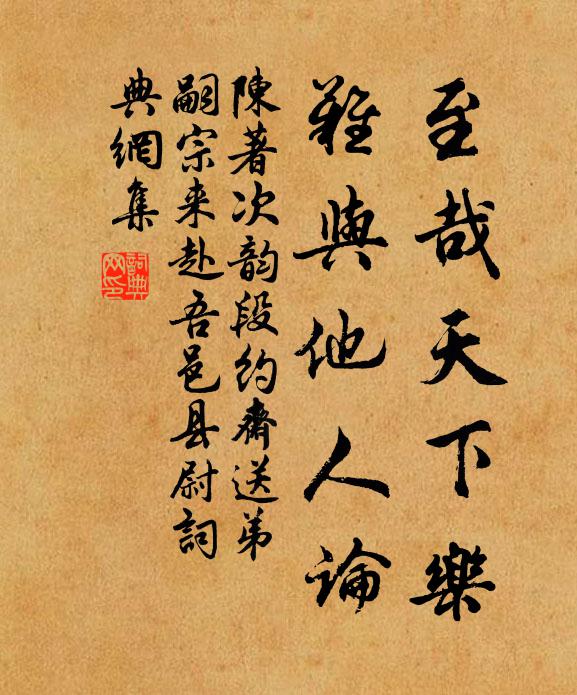 至哉天下樂
難與他人論
陳著次韵段約齋送弟
嗣宗来赴吾邑县尉詞
典網集
詞典
网印